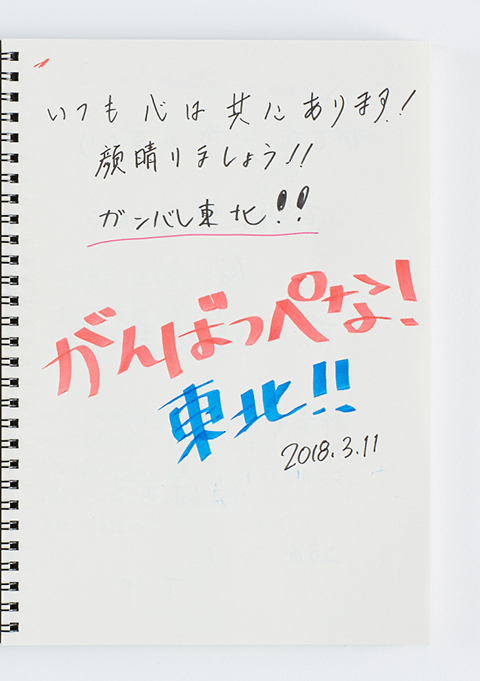 いつも心は共にあります!
顔晴りましょう!!
ガンバレ東北!!
がんばっぺな!
東北!!
2018.3.11